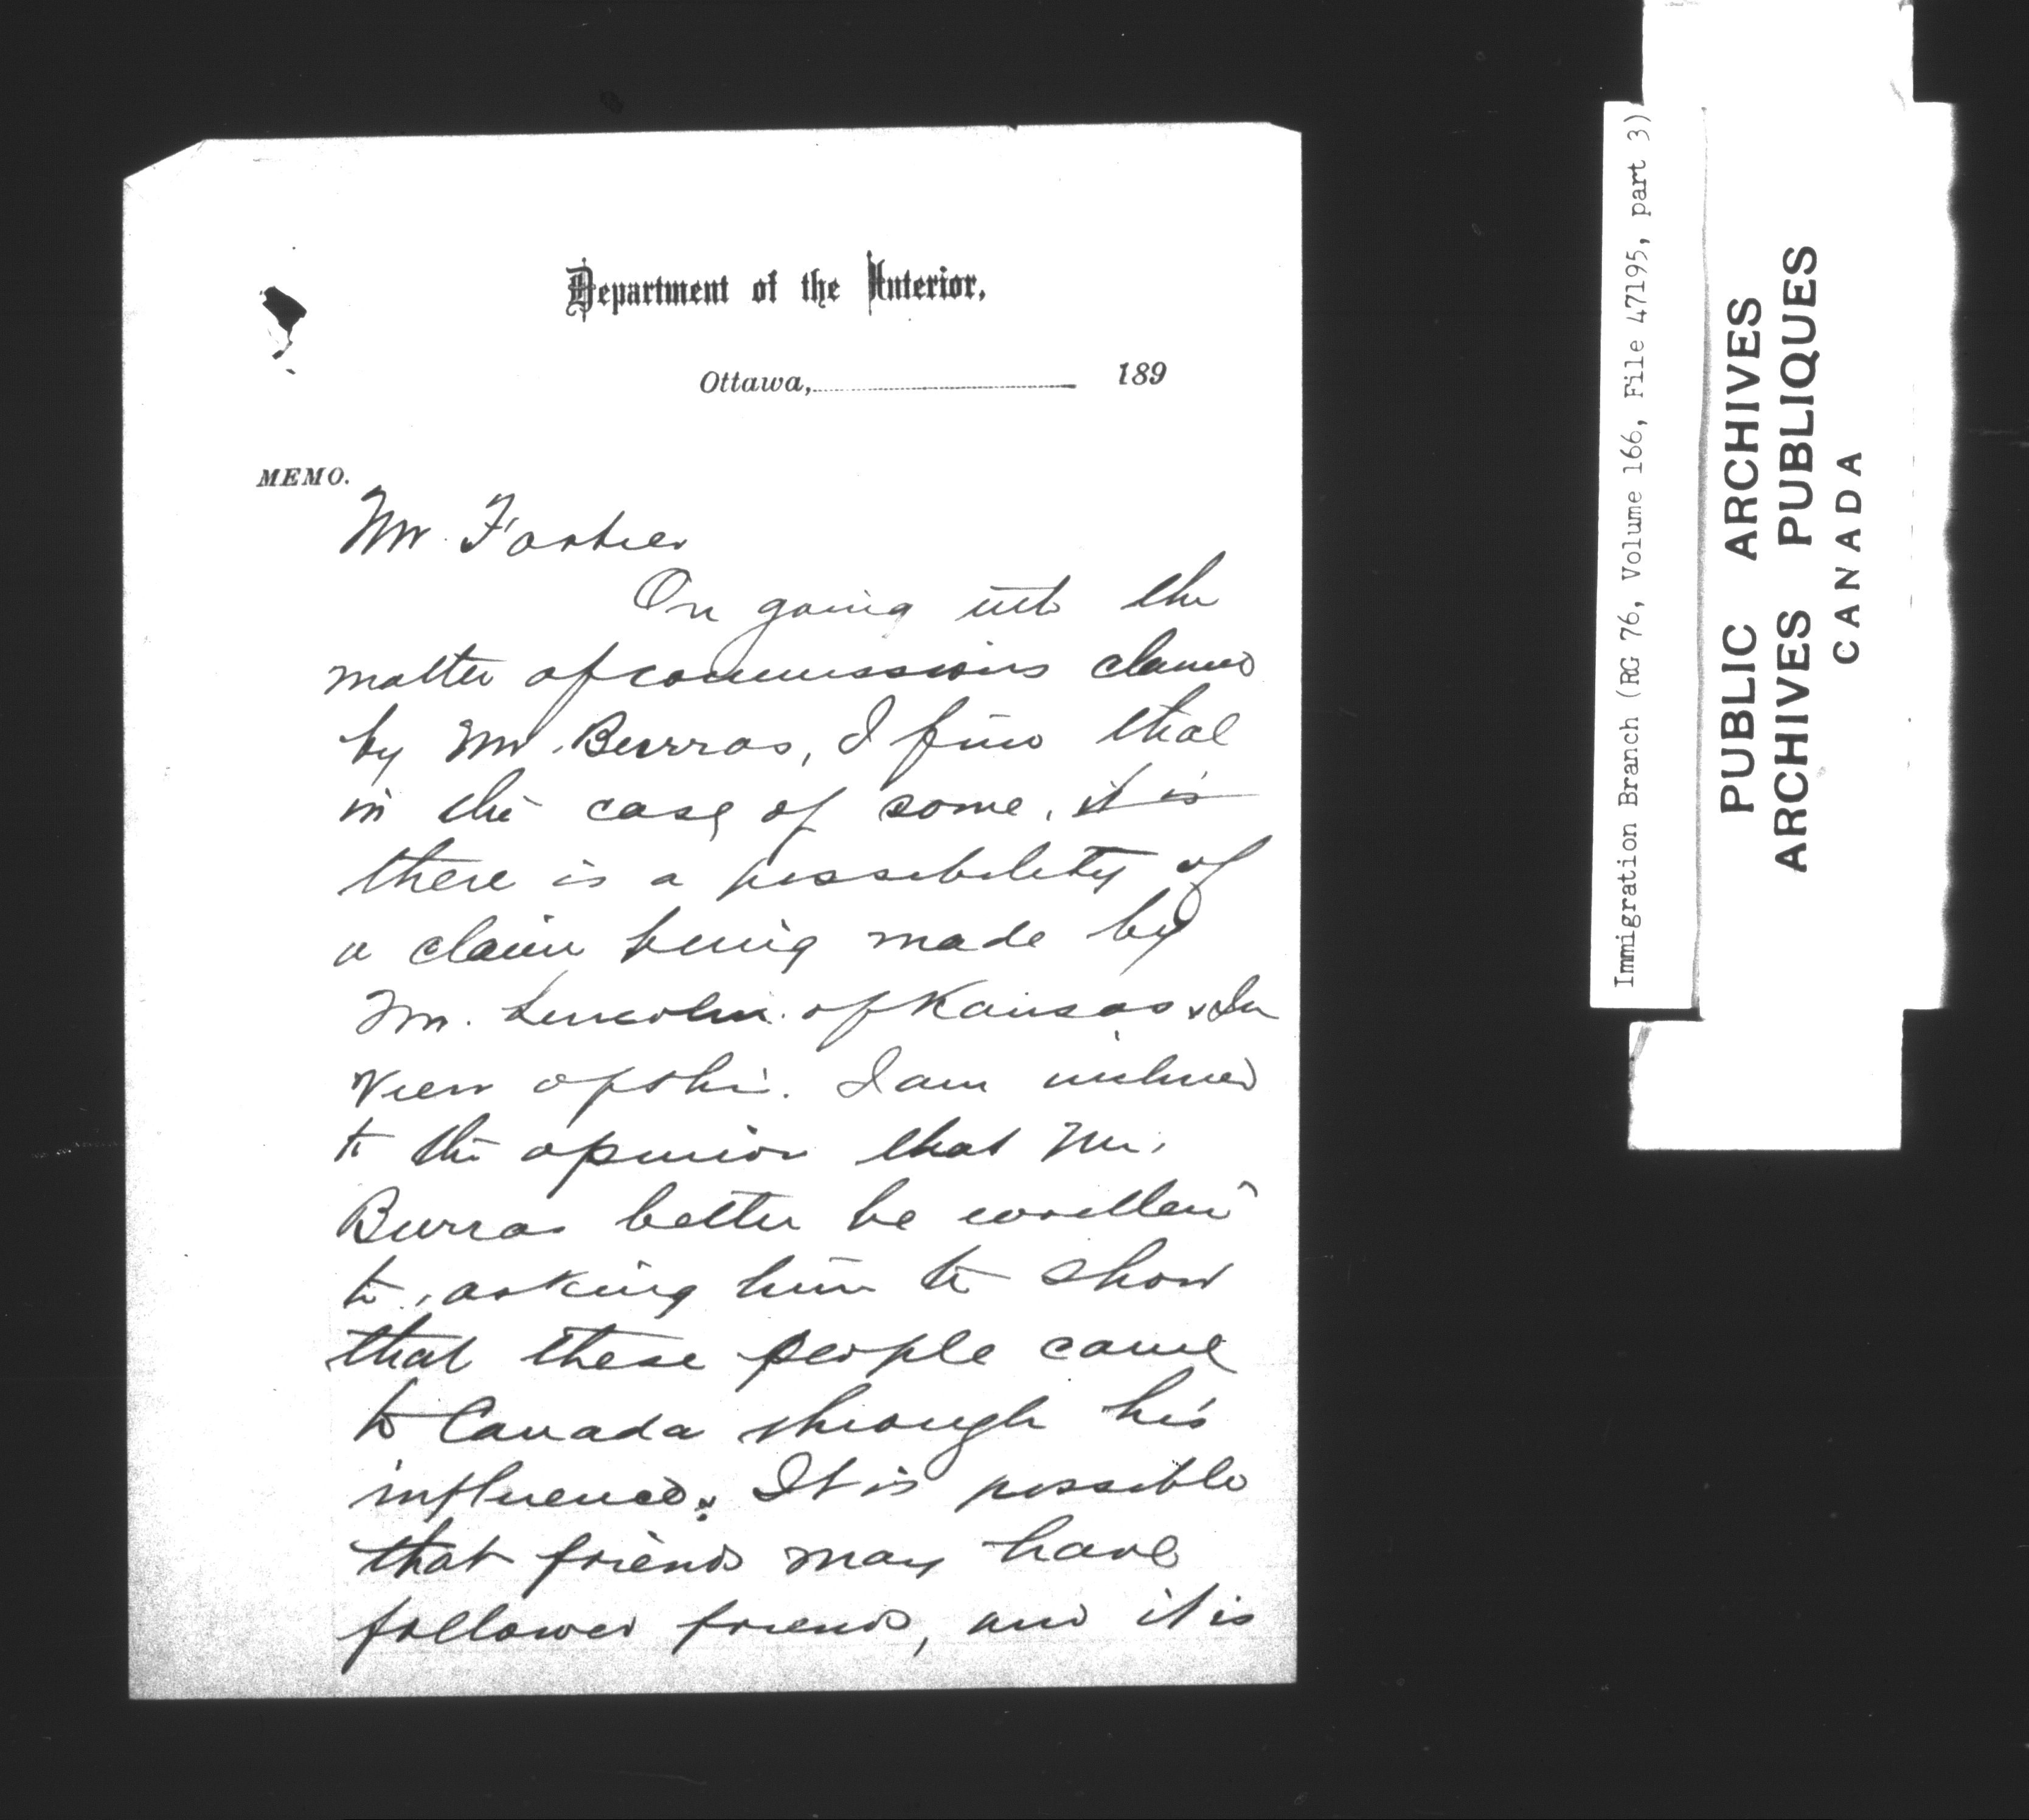 Department of the Interior.
Ottawa, 189
MEMO.
Mr. Fortier
On going into the
matter of commissions claimed
by Mr. Burras, I find that
in the case of some, it is
there is a possibility of
a claim being made by
Mr. Lincoln of Kansas. In
view of this. I am inclined
to the opinion that Mr.
Burras better be written
to, asking him to show
that these people came
to Canada through his
influence. It is possible
that friends may have
followed friends, and it is
Immigration Branch (RG 76, Volume 166, File 47195, part 3)
PUBLIC ARCHIVES
ARCHIVES PUBLIQUES
CANADA